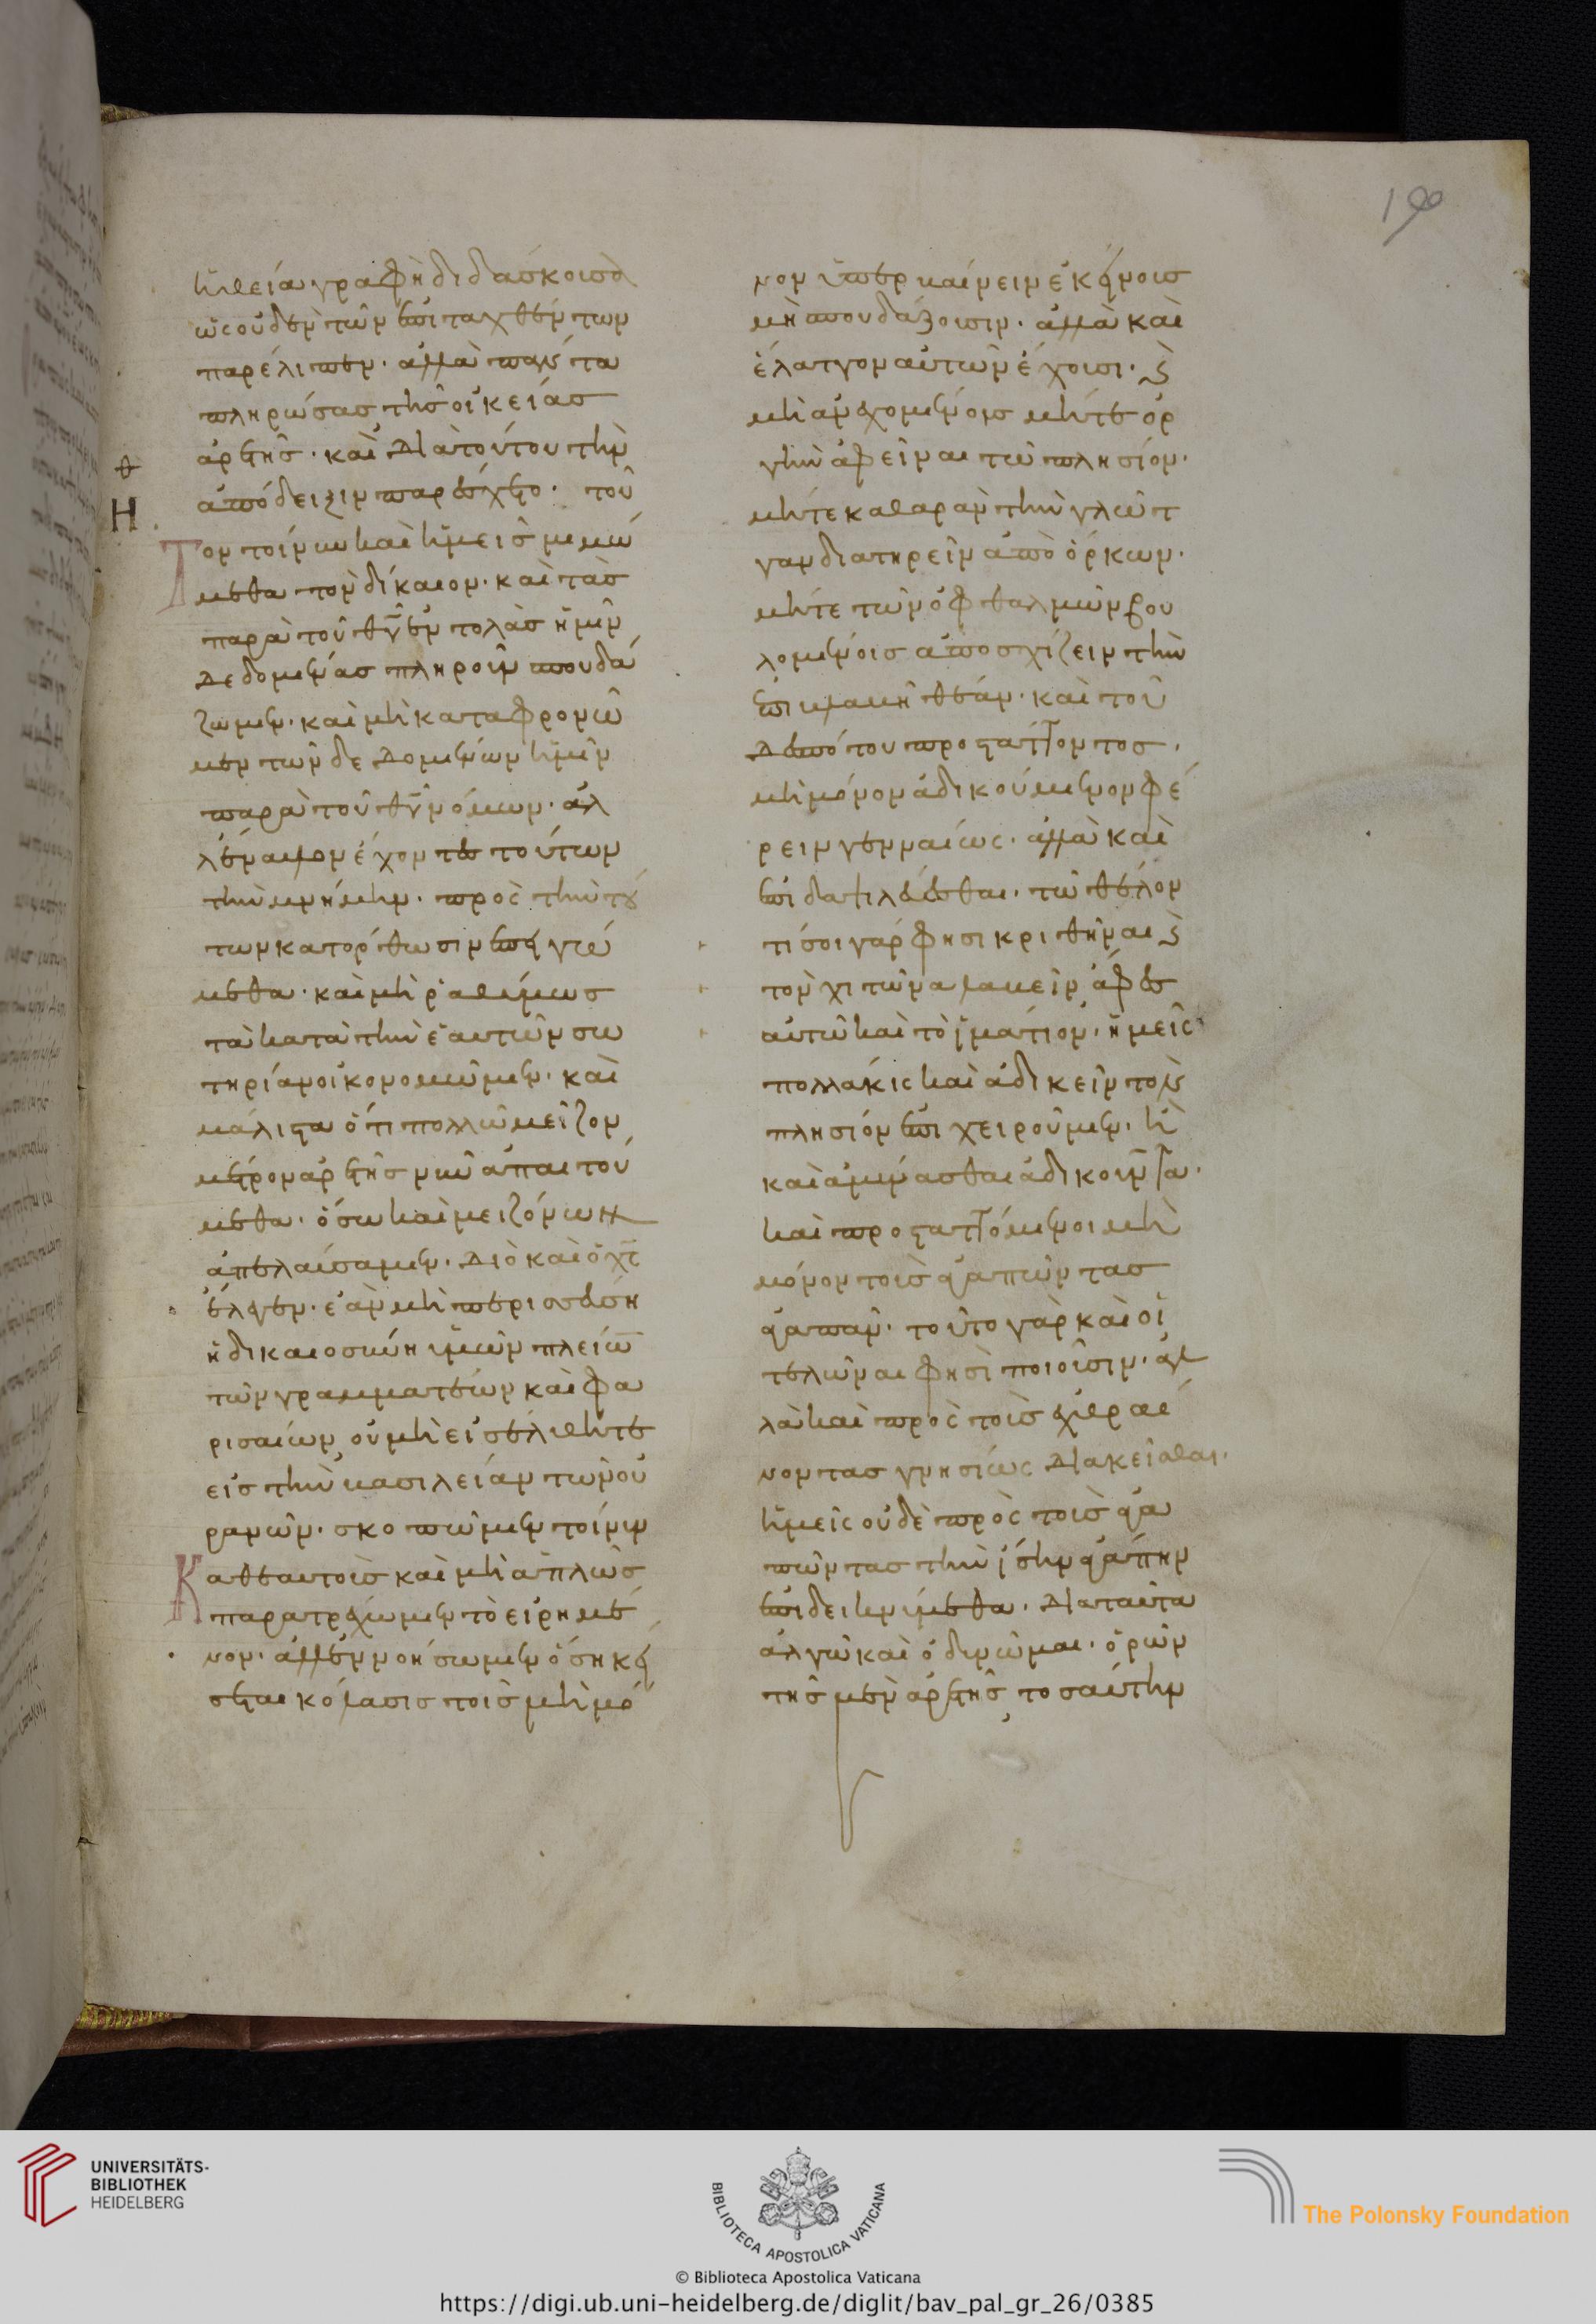 190
ἡ θεία γραφὴ διδάσκουσα
ὡς οὐδὲν τῶν ἐπιταχθέντων
παρέλιπεν· ἀλλὰ πάντα
πληρώσας τῆς οἰκείας
ἀρετῆς· καὶ διὰ τούτου τὴν
ἀπόδειξιν παρέσχετο· τοῦ
H
Τον τοίνυν καὶ ἡμεῖς μιμώ
μεθα τὸν δίκαιον· καὶ τὰς
παρὰ τοῦ θῦ ἐντολὰς ἡμῖν
δεδομένας πληροῦν σπουδά
ζωμεν· καὶ μὴ καταφρονῶ
μεν τῶν δεδομένων ἡμῖν
παρὰ τοῦ θῦ νόμων· ἀλ
λ' ἔναυλον ἔχοντες τούτων
τὴν μνήμην· πρὸς τὴν τού
των κατόρθωσιν ἐπειγώ
μεθα· καὶ μὴ ῥαθύμως
τὰ κατὰ τὴν ἑαυτῶν σω
τηρίαν οἰκονομῶμεν· καὶ
μάλιστα ὅτι πολλῷ μεῖζον
μέτρον ἀρετῆς νῦν ἀπαιτού
μεθα· ὅσῳ καὶ μειζόνων
ἀπελαύσαμεν· διὸ καὶ ὁ χς
ἔλεγεν· ἐὰν μὴ περισσεύσῃ
ἡ δικαιοσύνη ὑμῶν πλεῖον
τῶν γραμματέων καὶ φα
ρισαίων, οὐ μὴ εἰσέλθητε
εἰς τὴν βασιλείαν τῶν οὐ
ρανῶν· σκοπῶμεν τοίνυν
Καθ' ἑαυτοὺς καὶ μὴ ἁπλῶς
παρατρέχωμεν τὸ εἰρημέ
νον· ἀλλ' ἐννοήσωμεν ὅση κεί
σεται κόλασις τοῖς μὴ μό
νον ὑπερβαίνειν ἐκείνους
μὴ σπουδάζουσιν· ἀλλὰ καὶ
ἔλαττον αὐτῶν ἔχουσι· καὶ
μὴ ἀνεχομένοις μήτε ὀρ
γὴν ἀφεῖναι τῷ πλησίον·
μήτε καθαρὰν τὴν γλῶτ
ταν διατηρεῖν ἀπὸ ὅρκων·
μήτε τῶν ὀφθαλμῶν βου
λομένοις ἀποσχίζειν τὴν
ἐπιβλαβῆ θέαν· καὶ τοῦ
δεσπότου προστάττοντος·
μὴ μόνον ἀδικούμενον φέ
ρειν γενναίως· ἀλλὰ καὶ
ἐπιδαψιλεύεσθαι· τῷ θέλον
τί σοι γάρ φησι κριθῆναι καὶ
τὸν χιτῶνα λαβεῖν ἄφες
αὐτῷ καὶ τὸ ἱμάτιον· ἡμεῖς
πολλάκις καὶ ἀδικεῖν τοὺς
πλησίον ἐπιχειροῦμεν· ἢ
καὶ ἀμύνασθαι ἀδικοῦντα·
καὶ προσταττόμενοι μὴ
μόνον τοὺς ἀγαπῶντας
ἀγαπᾶν· τοῦτο γὰρ καὶ οἱ
τελῶναι φησὶ ποιοῦσιν· ἀλ
λὰ καὶ πρὸς τοὺς ἐχθραί
νοντας γνησίως διακεῖσθαι·
ἡμεῖς οὐδὲ πρὸς τοὺς ἀγα
πῶντας τὴν ἴσην ἀγάπην
ἐπιδεικνύμεθα· διὰ ταῦτα
ἀλγῶ καὶ ὀδυνῶμαι· ὁρῶν
τῆς μὲν ἀρετῆς, τοσαύτην
UNIVERSITÄTS-
BIBLIOTHEK
HEIDELBERG
BIBLIOTECA APOSTOLICA VATICANA
The Polonsky Foundation
© Biblioteca Apostolica Vaticana
https://digi.ub.uni-heidelberg.de/diglit/bav_pal_gr_26/0385